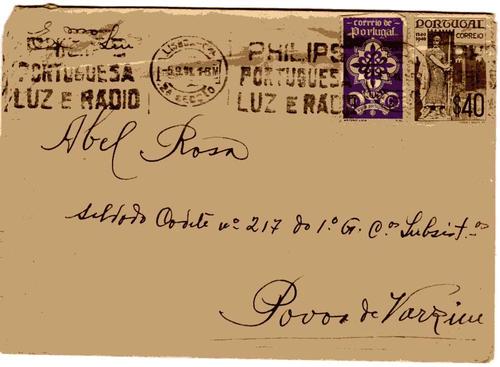 Exmo
PHILIPS
PORTUGUESA
LUZ E RADIO
LISBOA
2A SECÇÃO
PHILIPS
PORTUGUESA
LUZ E RADIO
correio de
Portugal
PORTUGAL
CORREIO
$40
Abel Rosa
Soldado Cadete nº 217 do 1º G. Cºs Subsist.as
Povoa de Varzim